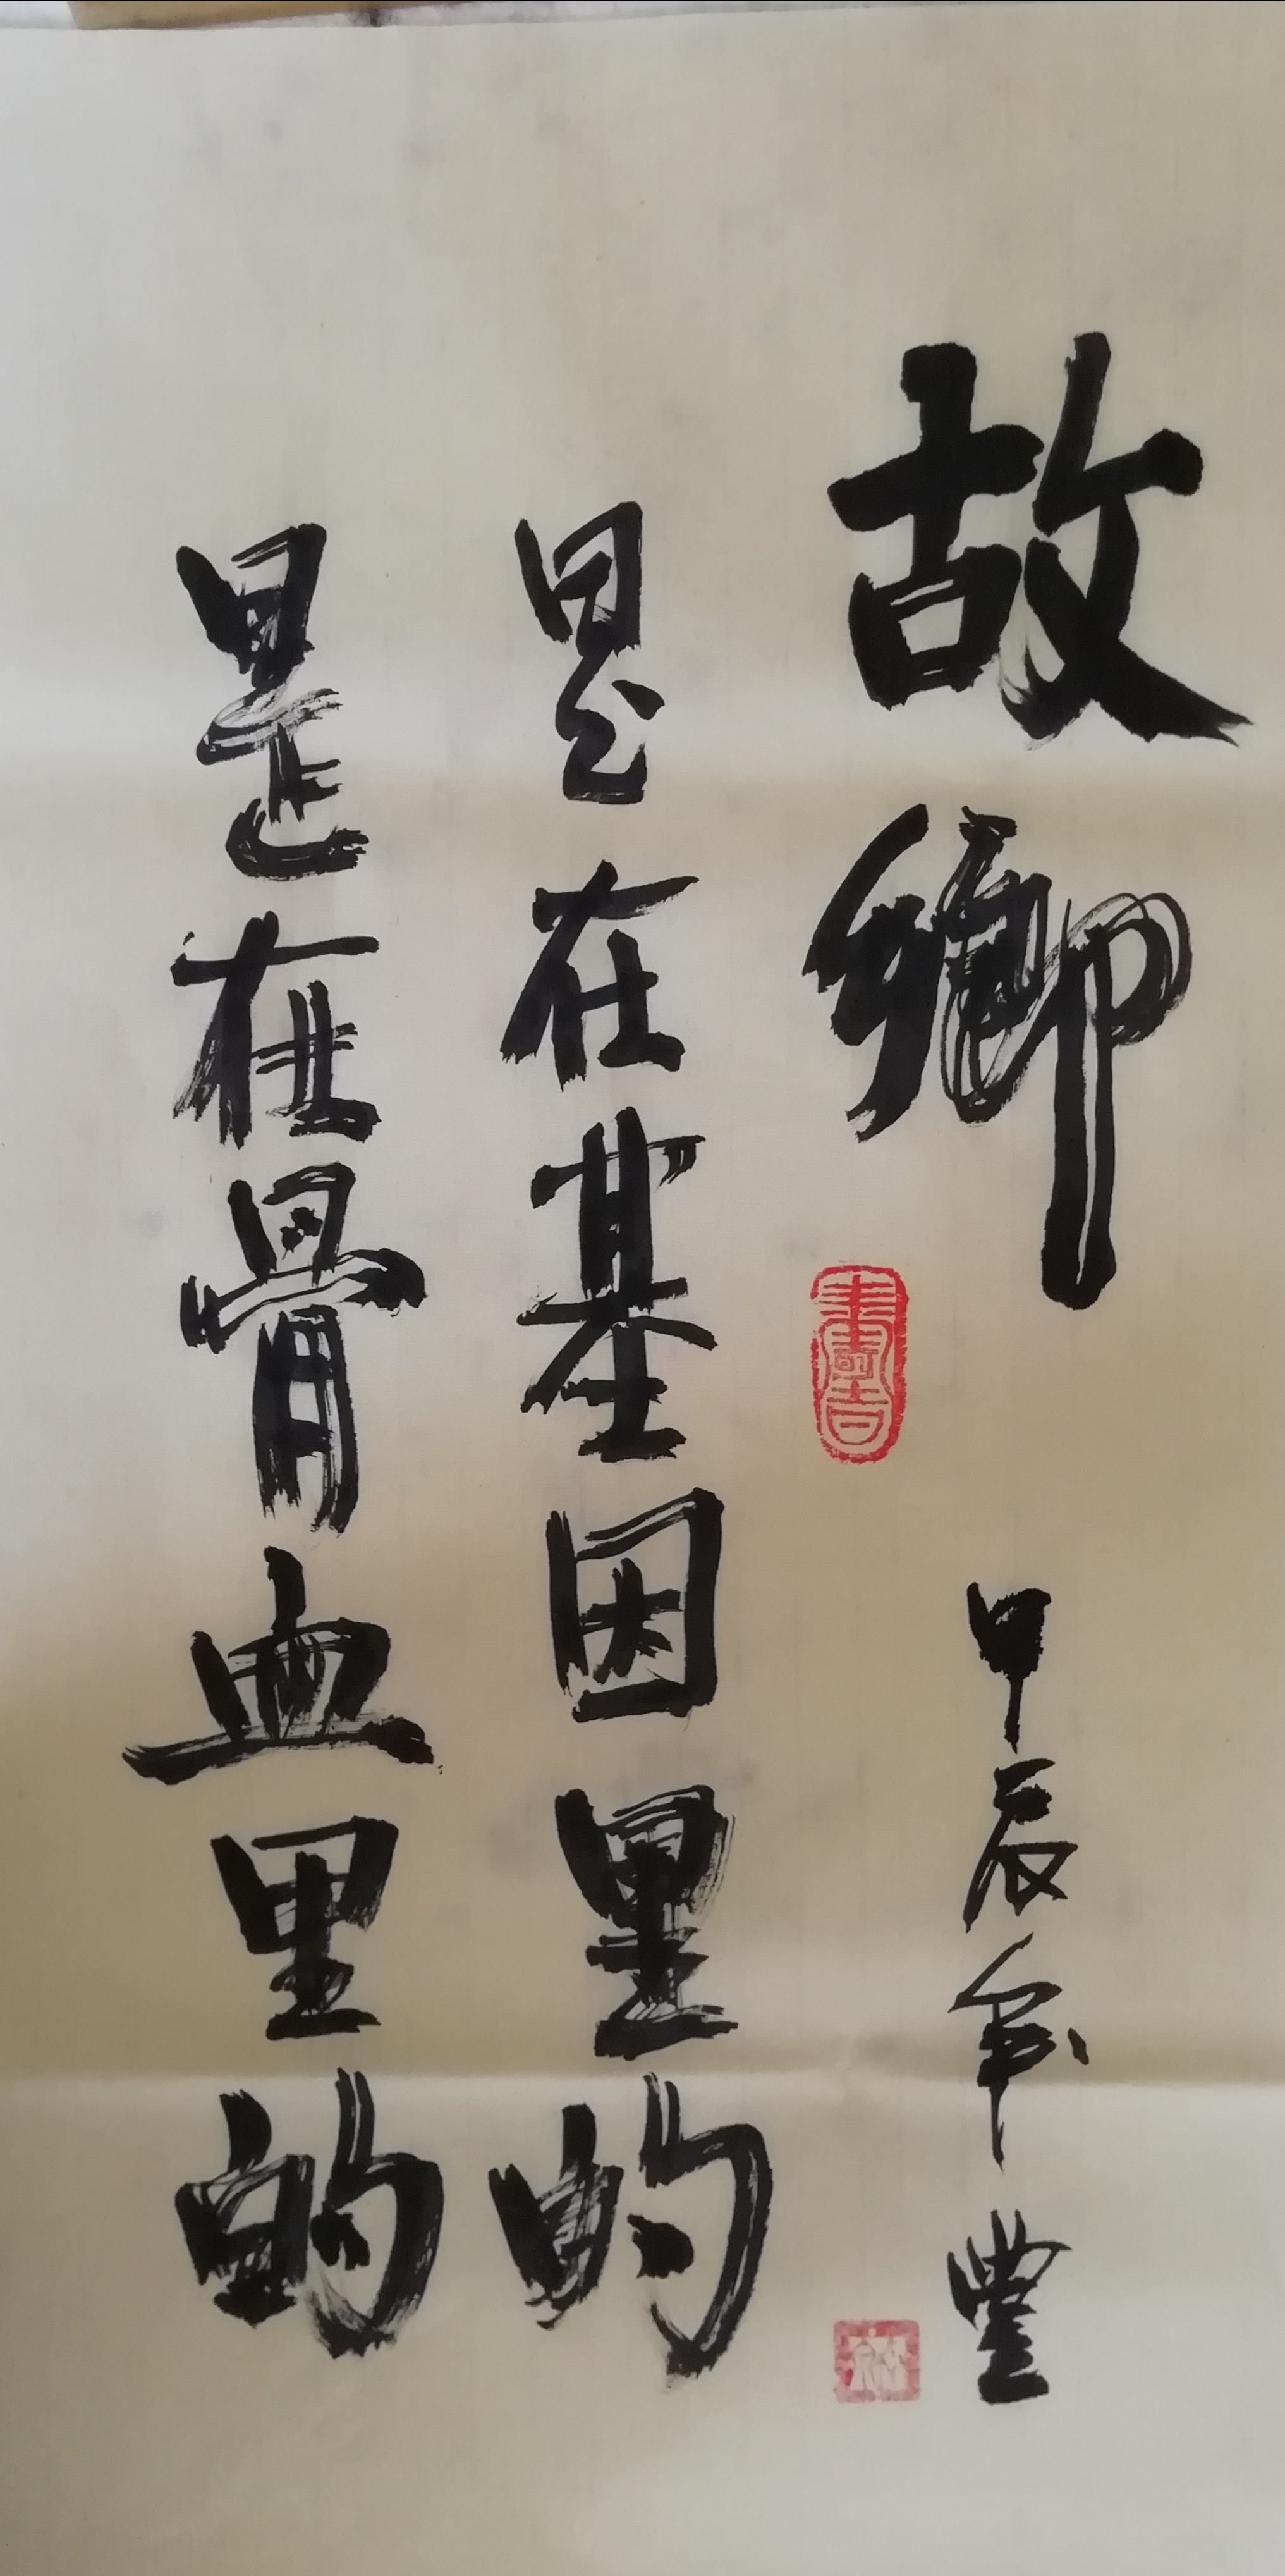 故鄉
甲辰年 豐
是在基因里的
是在骨血里的